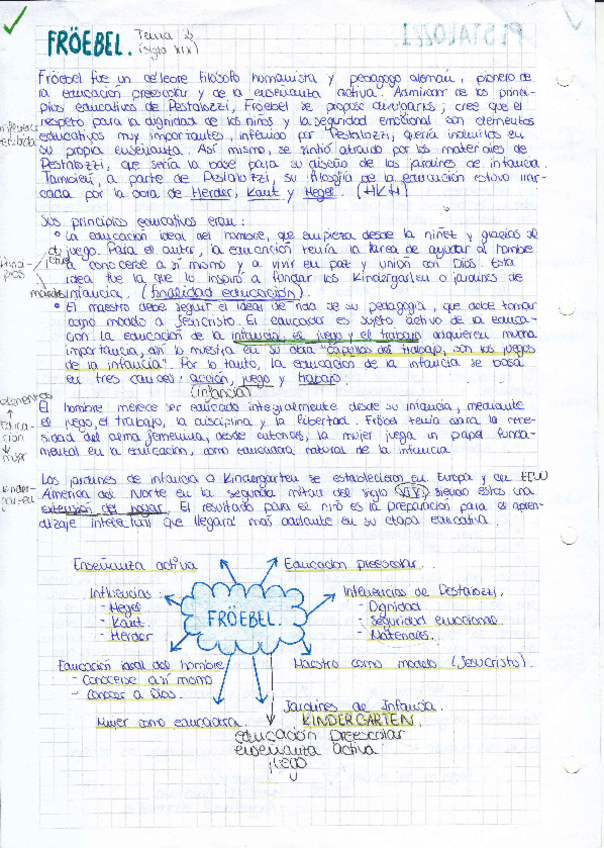 FRÖEBEL. Tema 2
(siglo XIX)
Fröebel fue un célebre filósofo humanista y pedagogo alemán, pionero de
la educación preescolar y de la enseñanza activa. Admirador de los princi-
pios educativos de Pestalozzi, Fröebel se propuso divulgarlos; cree que el
respeto para la dignidad de los niños y la seguridad emocional son elementos
educativos muy importantes, influido por Pestalozzi, quería incluirlos en
su propia enseñanza. Así mismo, se sintió atraído por los materiales de
Pestalozzi, que sería la base para su diseño de los jardines de infancia.
También, a parte de Pestalozzi, su filosofía de la educación estuvo mar-
cada por la obra de Herder, Kant y Hegel. (HKH)
Sus principios educativos eran:
• La educación ideal del hombre, que empieza desde la niñez y gracias al
juego. Para el autor, la educación tenía la tarea de ayudar al hombre
a conocerse a sí mismo y a vivir en paz y unión con Dios. Esta
idea fue la que lo inspiró a fundar los Kindergarten o jardines de
infancia. (finalidad educación).
• El maestro debe seguir el ideal de vida de su pedagogía, que debe tomar
como modelo a Jesucristo. El educador es sujeto activo de la educa-
ción. La educación de la infancia, el juego y el trabajo adquieren mucha
importancia, así lo muestra en su obra "
del trabajo, son los juegos
de la infancia". Por lo tanto, la educación de la infancia se basa
en tres cauces: acción, juego y trabajo.
(infancia)
El hombre merece ser educado integralmente desde su infancia, mediante
el juego, el trabajo, la disciplina y la libertad. Fröbel tenía clara la nece-
sidad del alma femenina, desde entonces, la mujer juega un papel funda-
mental en la educación, como educadora natural de la infancia.
Los jardines de infancia o Kindergarten se establecieron en Europa y en EEUU
América del Norte en la segunda mitad del siglo XIX, siendo estos una
extensión del hogar. El resultado para el niño es la preparación para el apren-
dizaje intelectual que llegará más adelante en su etapa educativa.
Enseñanza activa
Educación preescolar.
Influencias
- Hegel
- Kant
- Herder
FRÖEBEL.
Influencias de Pestalozzi.
- Dignidad
- Seguridad emocional
- Materiales.
Educación ideal del hombre
- Conocerse a sí mismo
- Conocer a Dios.
Maestro como modelo (Jesucristo).
Mujer como educadora.
Jardines de Infancia.
KINDERGARTEN.
educación preescolar
enseñanza activa
juego